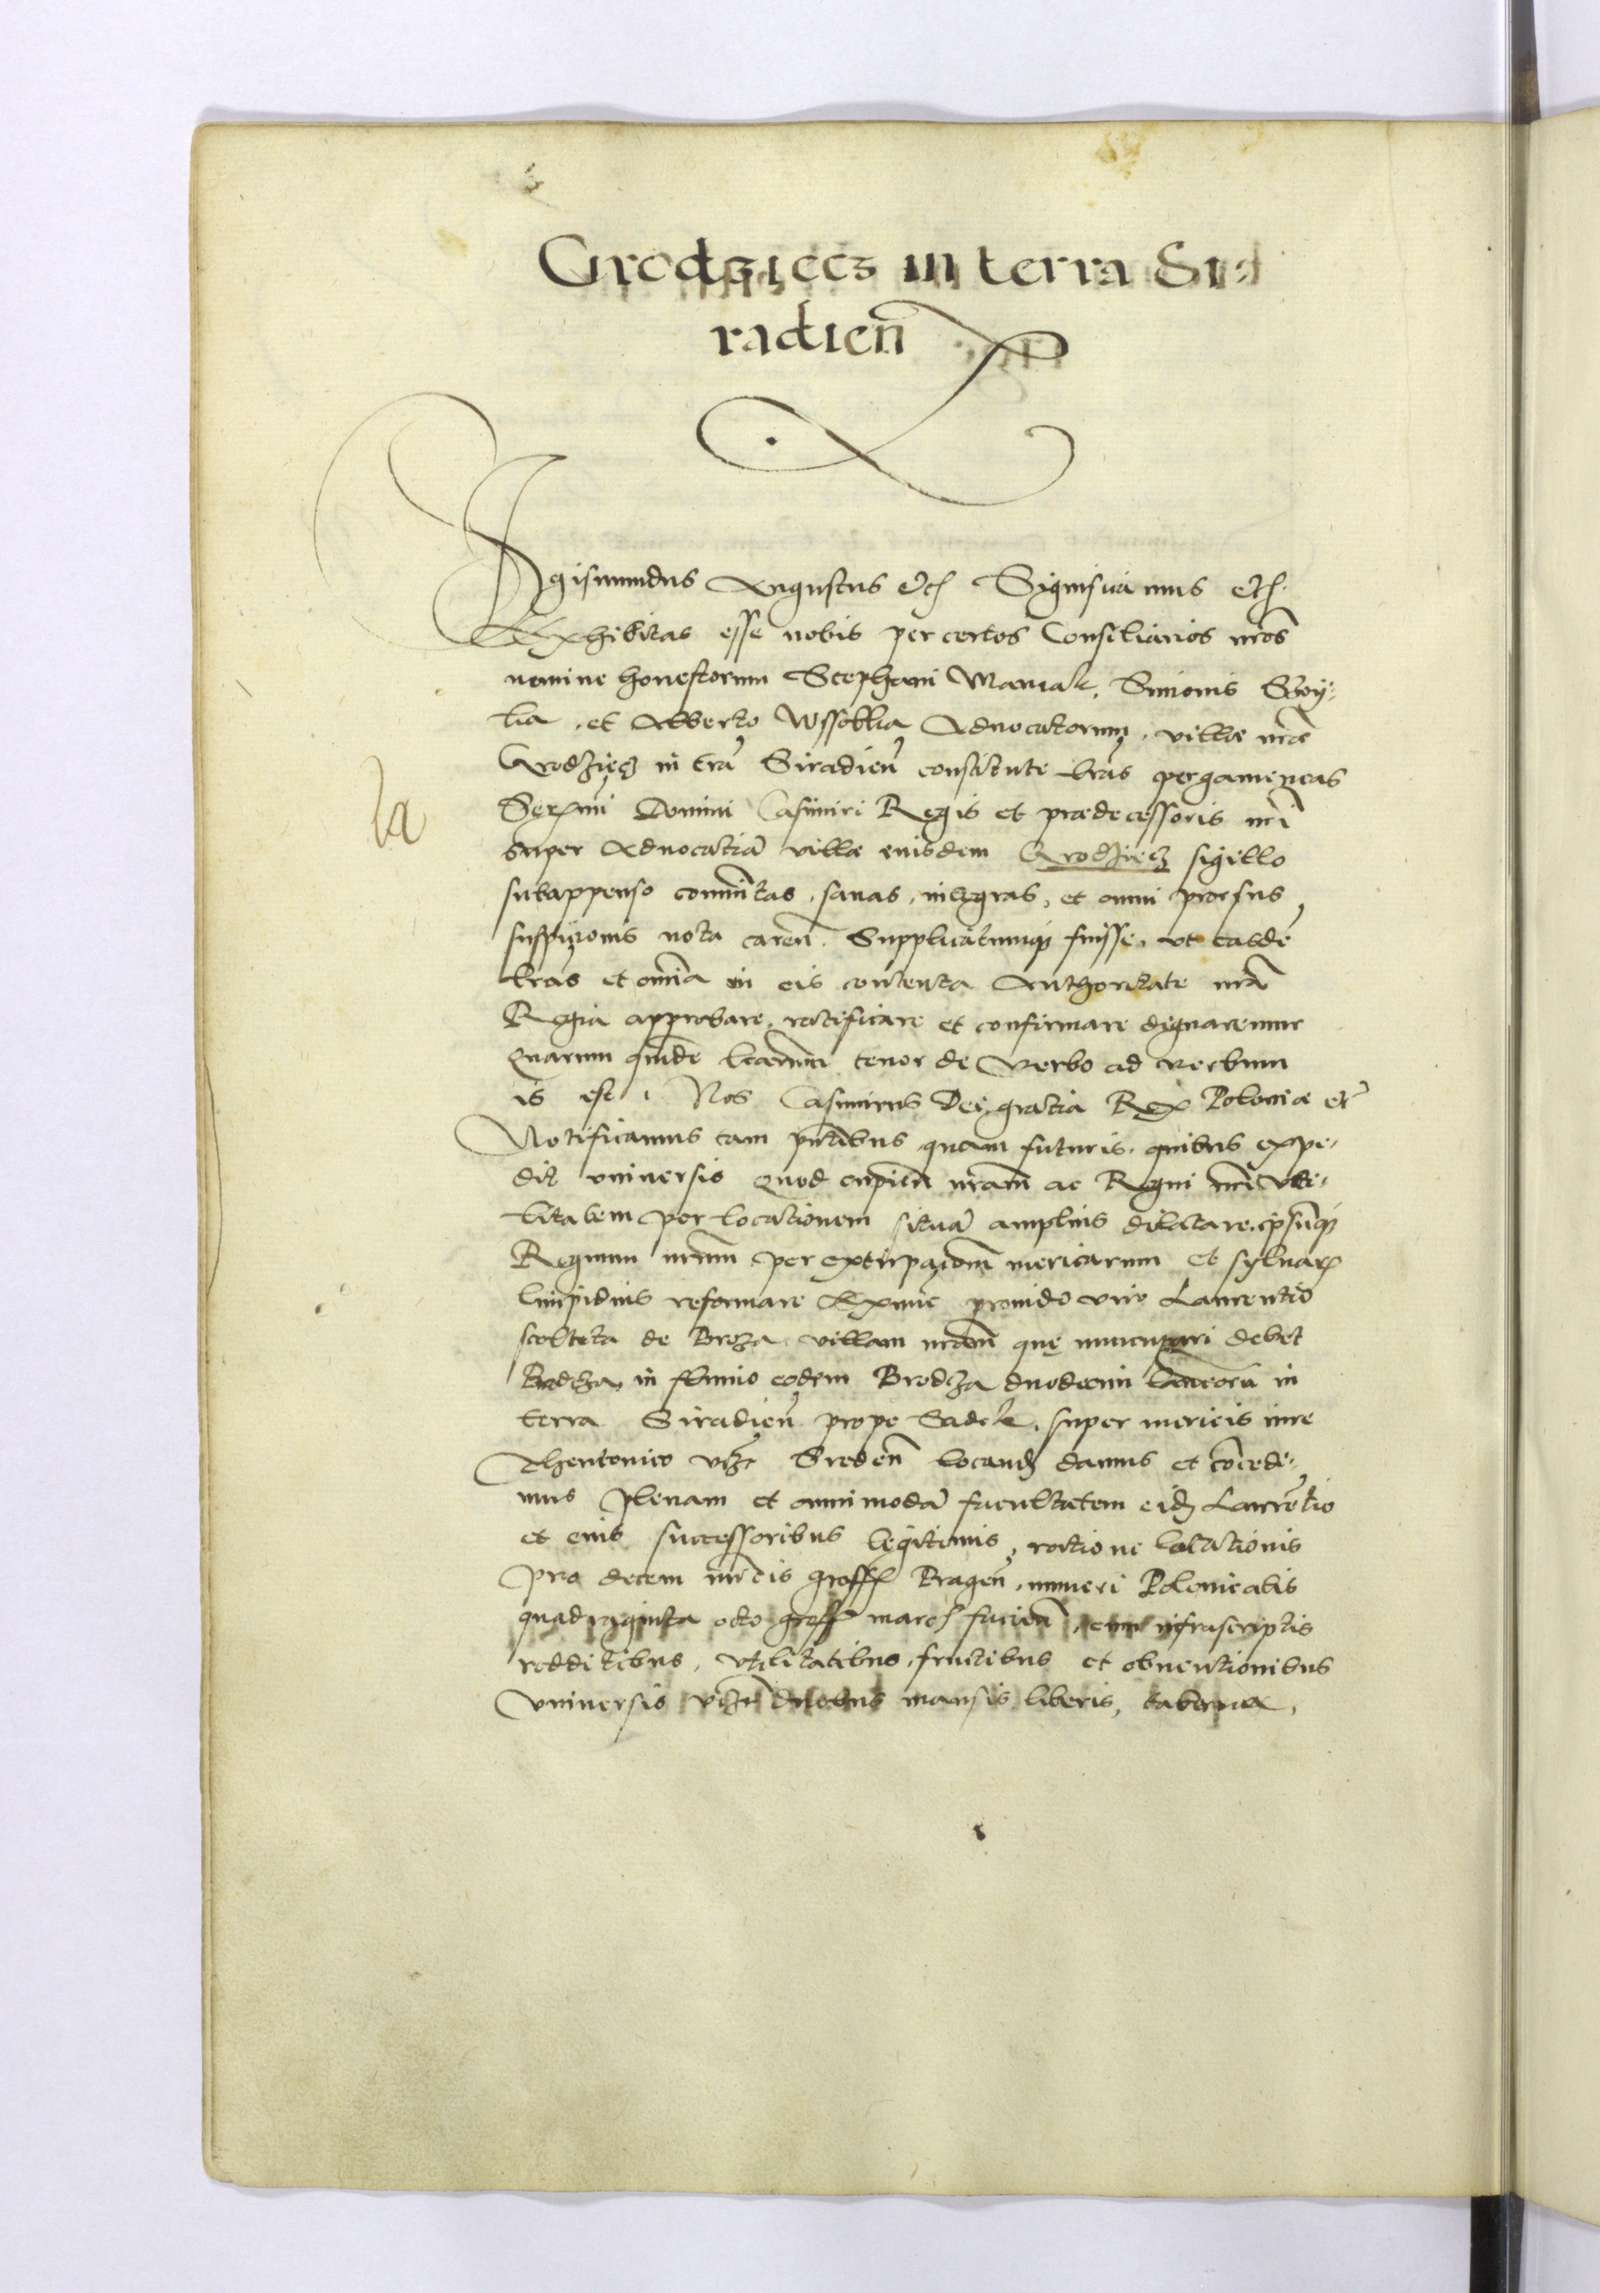 Grodziecz in terra Si-
radien̄
Sigismundus Augustus etc. Significamus etc.
Exhibitas esse nobis per certos Consiliarios nr̄os
nomine honestorum Stephani Maruak, Simonis
lia, et Alberto Wssoblia Aduocatorum, villæ nr̄æ
Grodzięcz in tr̄a Siradien̄ constitute lr̄as pergameneas
Ser̄mi Domini Casimiri Regis et prædecessoris nr̄i
super Aduocatiā villæ eiusdem Grodziecz sigillo
subappenso com̄nitas, sanas, integras, et omni prorsus
suspi͞onis nota caren̄. Supplicatumq; fuisse, vt easdē
lr̄as et om̄ia in eis contenta Authoritate nr̄a
Regia approbare, ratificare et confirmare dignaremur
Quarum quidē lr̄arum tenor de verbo ad verbum
is est, Nos Casimirus Dei gratia Rex Poloniæ etc̄
Notificamus tam pn̄tibus quam futuris, quibus expe-
dit vniuersis Quod cupien̄ nr̄am ac Regni nr̄i vti-
litatem per locationem situā amplius dilatare, ipsūq;
Regnum nr̄um per extirpa͞com mericarum et syluar̄
limpidius reformare Exnūc prouido viro Laurentio
scolteta de Broza villam nr̄am quę nuncupari debet
Brodcza in fluuio eodem Brodcza duodecim laneorū in
terra Siradien̄ prope Sadek, super mericis iure
Theutonico vz̄ Sreden̄ locand̄ damus et cōcede-
mus plenam et omnimodā facultatem eid̄ Laurētio
et eius successoribus legitimis, ratione locationis
pro decem mr̄cis gross̄ Pragen̄, numeri Polonicalis
quadraginta octo gross̄ marc̄ facien̄, cum infrascriptis
redditibus, vtilitatibus, fructibus et obuentionibus
vniuersis vz̄ duobus mansis liberis, taberna,